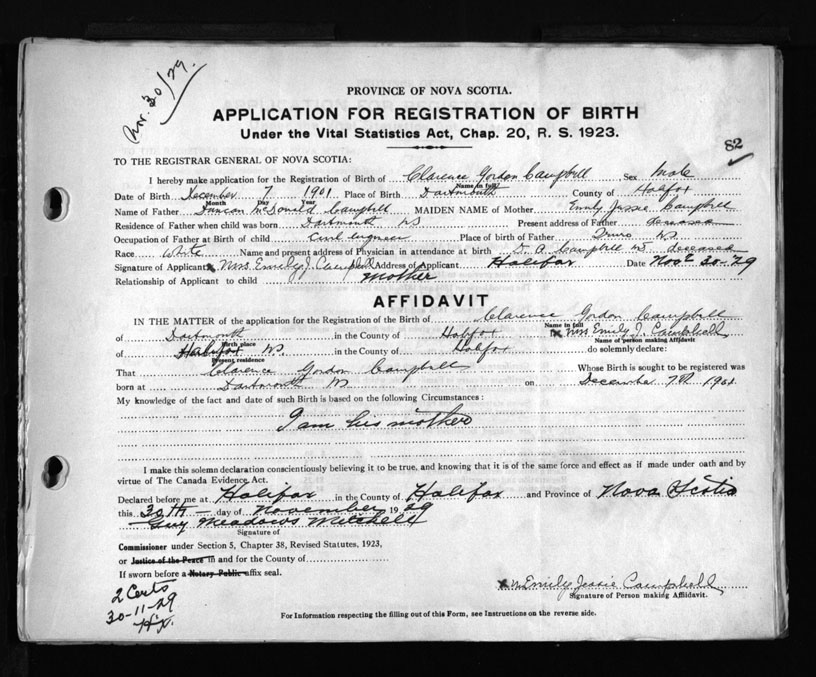 Nov. 30/29.
PROVINCE OF NOVA SCOTIA.
APPLICATION FOR REGISTRATION OF BIRTH
Under the Vital Statistics Act, Chap. 20, R. S. 1923.
82
TO THE REGISTRAR GENERAL OF NOVA SCOTIA:
I hereby make application for the Registration of Birth of Clarence Gordon Campbell Sex Male
Name in full
Date of Birth December 7 1901 Place of Birth Dartmouth County of Halifax
Month Day Year
Name of Father Duncan McDonald Campbell MAIDEN NAME of Mother Emily Jessie Campbell
Residence of Father when child was born Dartmouth NS Present address of Father deceased
Occupation of Father at Birth of child Civil Engineer Place of birth of Father Truro NS.
Race White Name and present address of Physician in attendance at birth D. A. Campbell MD deceased
Signature of Applicant x Mrs Emily J. Campbell Address of Applicant Halifax Date Nov 30-29
Relationship of Applicant to child mother
AFFIDAVIT
IN THE MATTER of the application for the Registration of the Birth of Clarence Gordon Campbell
Name in full
of Dartmouth in the County of Halifax x Mrs Emily J. Campbell
Birth place Name of person making Affidavit
of Halifax NS. in the County of Halifax do solemnly declare:
Present residence
That Clarence Gordon Campbell Whose Birth is sought to be registered was
born at Dartmouth NS on December 7th 1901
My knowledge of the fact and date of such Birth is based on the following Circumstances:
I am his mother
I make this solemn declaration conscientiously believing it to be true, and knowing that it is of the same force and effect as if made under oath and by
virtue of The Canada Evidence Act.
Declared before me at Halifax in the County of Halifax and Province of Nova Scotia
this 30th day of November 1929
Guy Meadows Mitchell
Signature of
Commissioner under Section 5, Chapter 38, Revised Statutes, 1923,
or Justice of the Peace in and for the County of
If sworn before a Notary Public affix seal.
x Emily Jessie Campbell
Signature of Person making Affidavit.
2 Certs
30-11-29
For Information respecting the filling out of this Form, see Instructions on the reverse side.